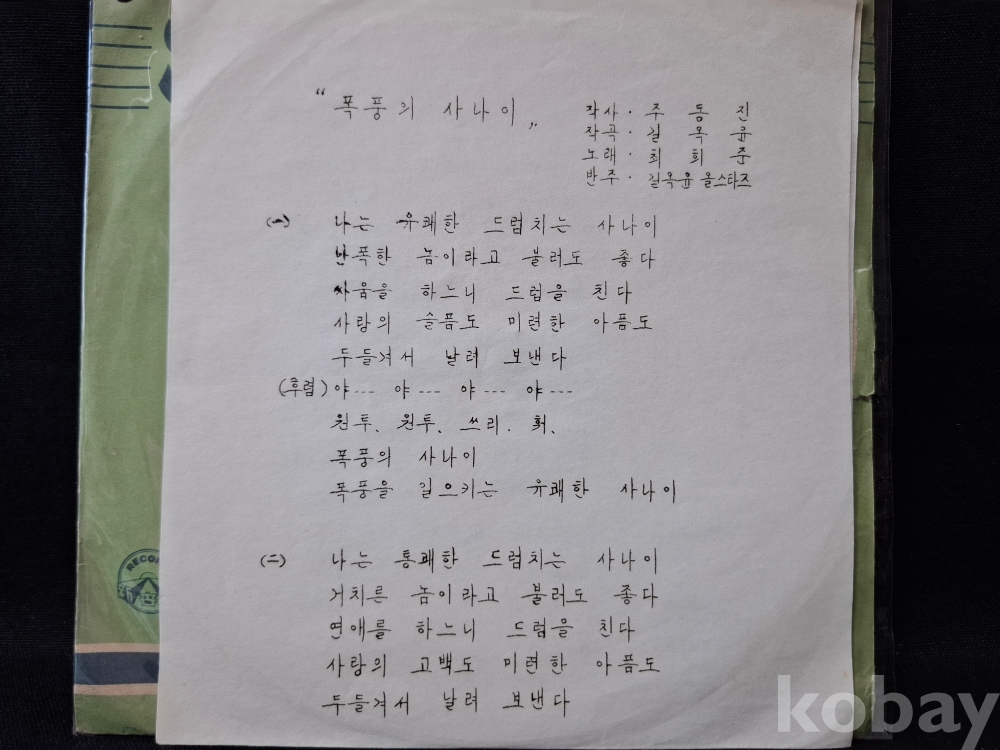 "폭풍의 사나이"
작사 · 주 동 진
작곡 · 길 옥 윤
노래 · 최 희 준
반주 · 길옥윤 올스타즈
(一) 나는 유쾌한 드럼치는 사나이
난폭한 놈이라고 불러도 좋다
싸움을 하느니 드럼을 친다
사랑의 슬픔도 미련한 아픔도
두들겨서 날려 보낸다
(후렴) 야--- 야--- 야--- 야---
원투、원투、쓰리.
폭풍의 사나이
폭풍을 일으키는 유쾌한 사나이
(二) 나는 통쾌한 드럼치는 사나이
거치른 놈이라고 불러도 좋다
연애를 하느니 드럼을 친다
사랑의 고백도 미련한 아픔도
두들겨서 날려 보낸다
RECO
kobay